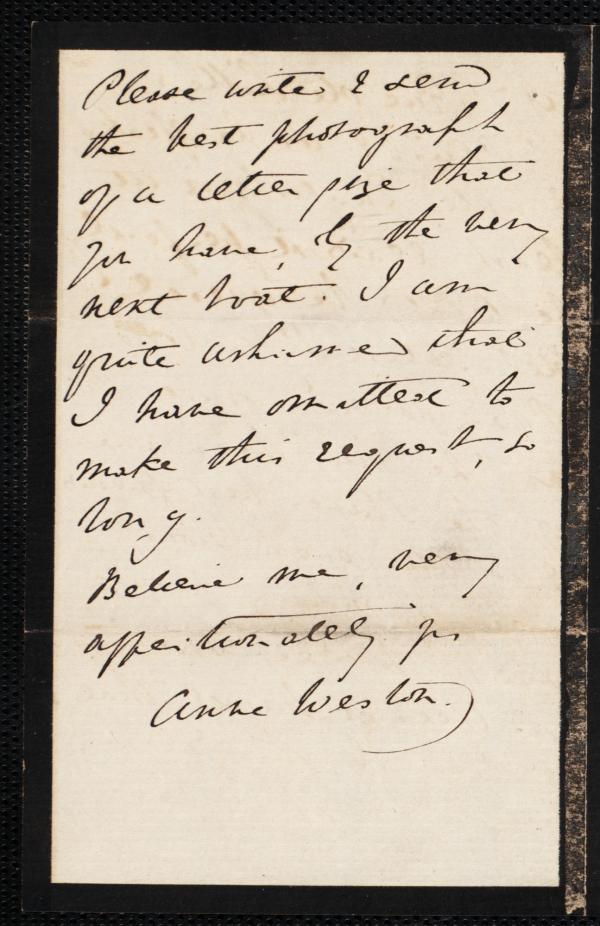 Please write & send
the best photograph
of a letter size that
you have, by the very
next boat. I am
quite ashamed that
I have omitted to
make this request, so
long.
Believe me, very
affectionately yrs
Anne Weston.